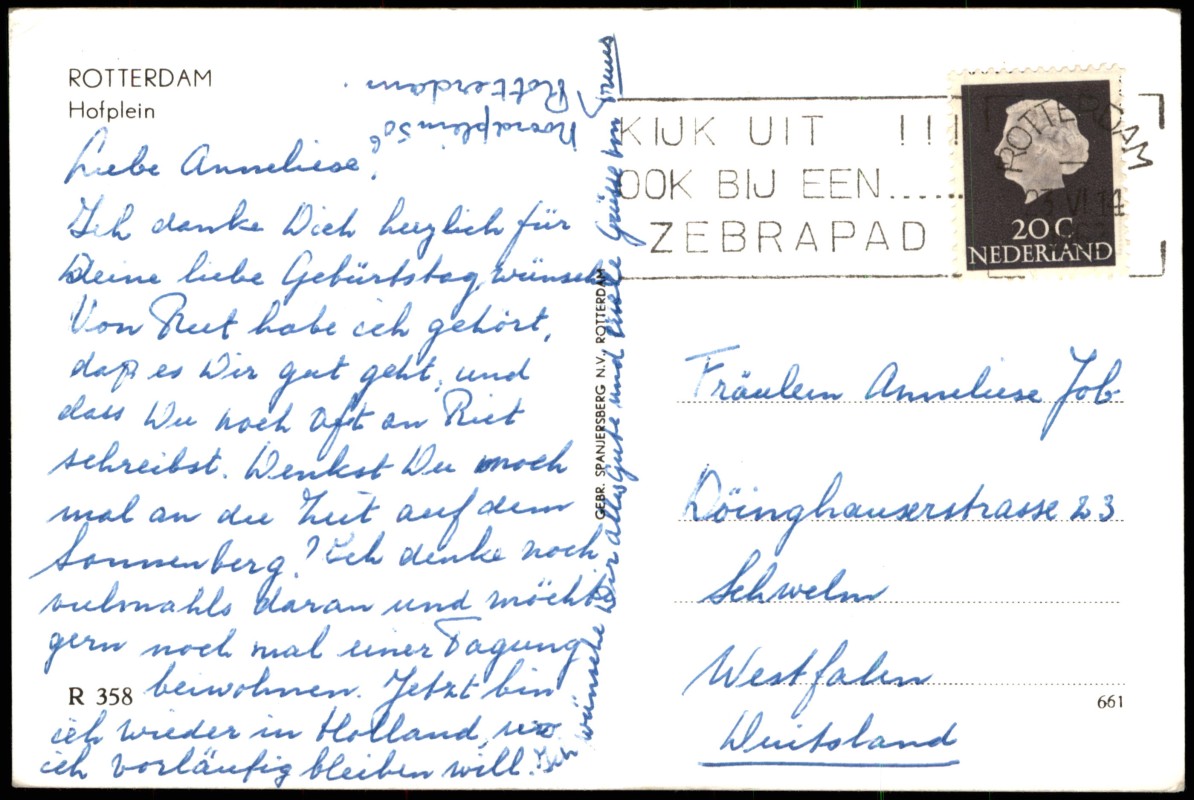 ROTTERDAM
Hofplein
Noordplein 50b
Rotterdam.
Liebe Anneliese,
Ich danke Dich herzlich für
Deine liebe Gebürtstag wünsche
Von Riet habe ich gehört,
daß es Dir gut geht, und
dass Du noch oft an Riet
schreibst. Denkst Du noch
mal an die Zeit auf dem
Sonnenberg? Ich denke noch
vielmahls daran und möchte
gern noch mal einer Tagung
beiwohnen. Jetzt bin
ich wieder in Holland, wo
ich vorläufig bleiben will. Ich
wünsche Dir alles Gute und viele Grüsse von
R 358
GEBR. SPANJERSBERG N.V., ROTTERDAM
KIJK UIT !!!
OOK BIJ EEN......
ZEBRAPAD
ROTTERDAM
23 VI 14
20 C
NEDERLAND
Fräulein Anneliese Job
Döinghauserstrasse 23
Schwelm
Westfalen
Duitsland
661